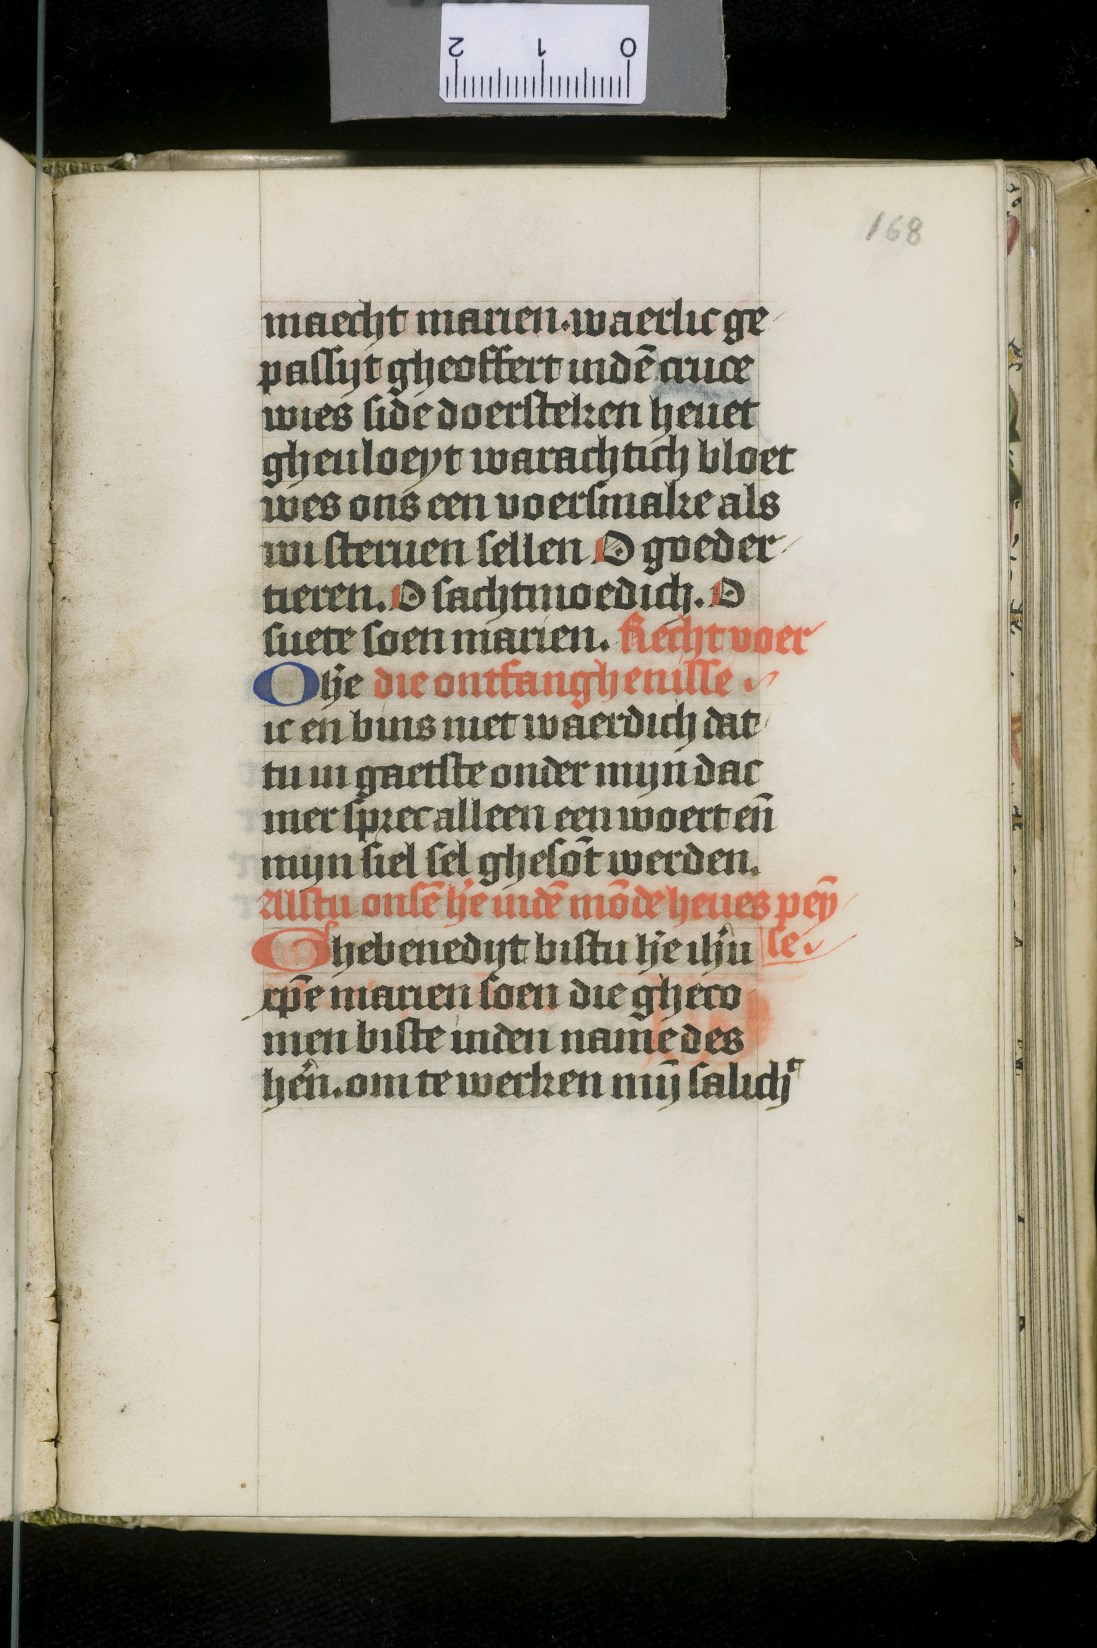 2 1 0
168
maecht marien. waerlic ge
passijt gheoffert indē cruce
wies side doersteken heuet
gheuloeyt warachtich bloet
wes ons een voersmake als
wi steruen sellen O goeder
tieren. O sachtmoedich. O
suete soen marien. Recht voer
O hē die ontfanghenisse
ic en bins niet waerdich dat
tu in gaetste onder mijn dac
mer sprec alleen een woert en̄
mijn siel sel ghesōt werden.
Alstu onsē hē indē mōde heues pey̅
Ghebenedijt bistu hē ihū se.
xp̄e marien soen die gheco
men biste inden name des
hēn. om te werken mij̄ salichꝭ